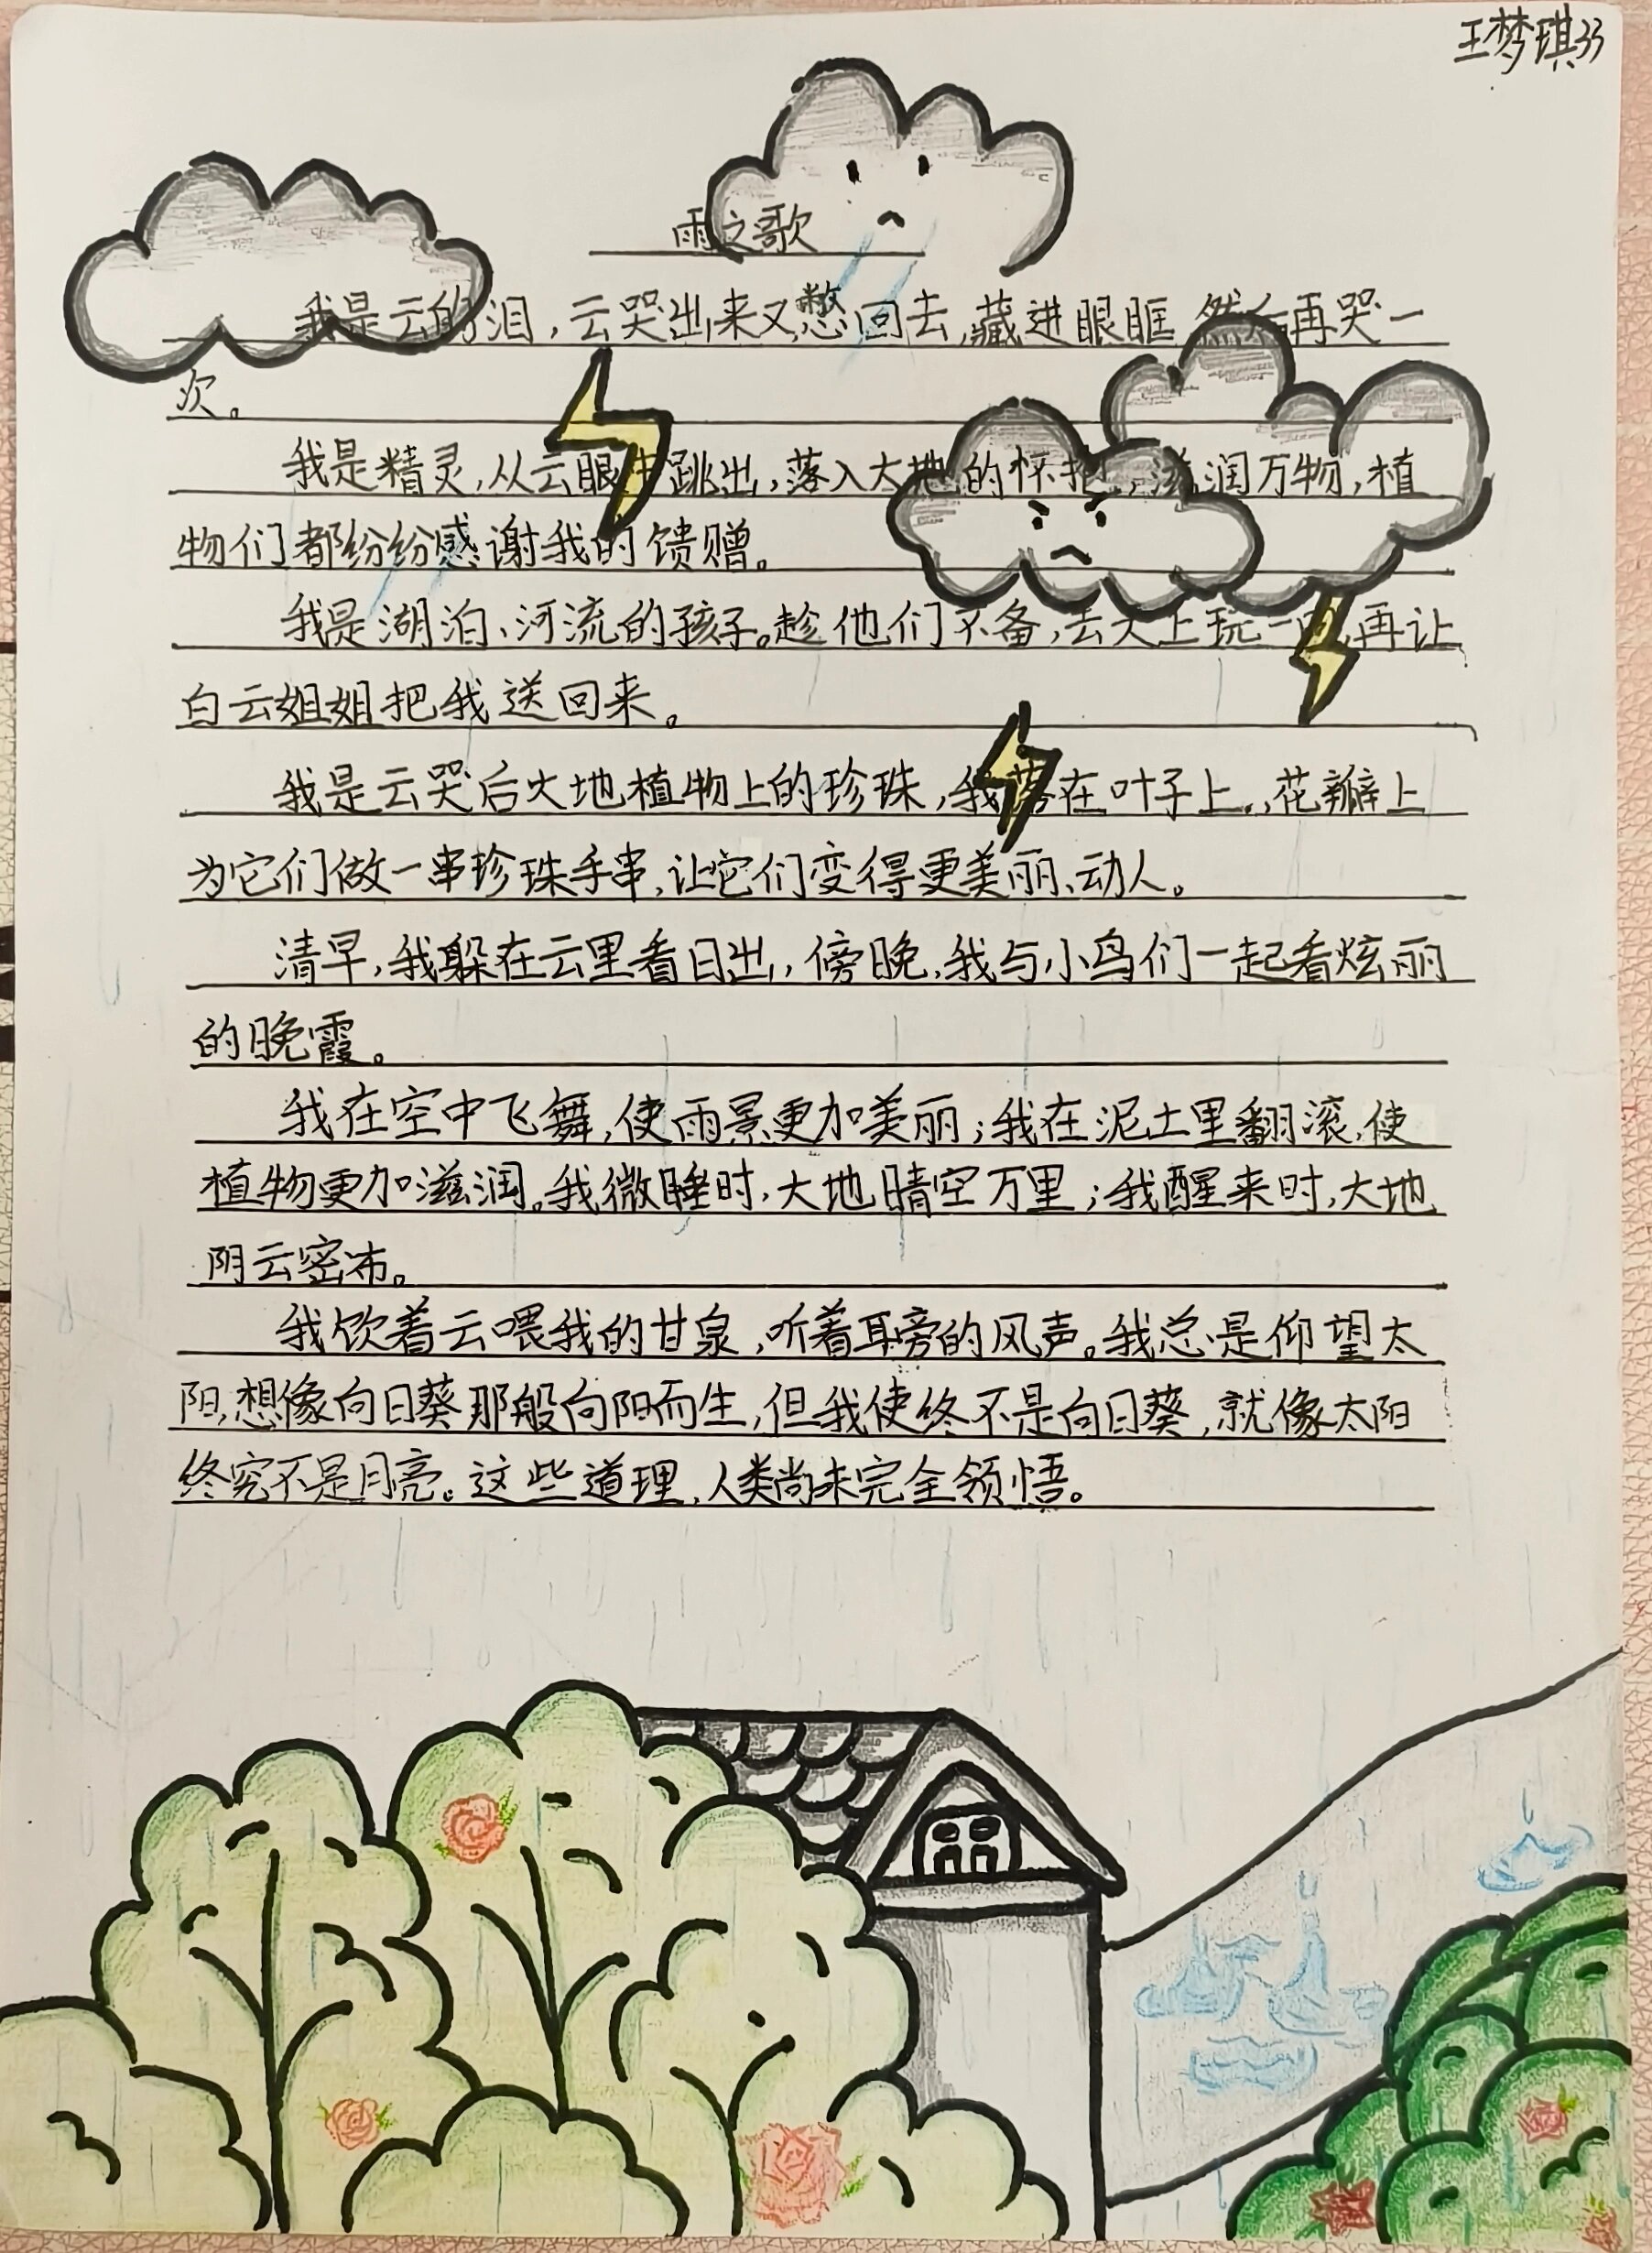 王梦琪33
雨之歌
我是云的泪，云哭出来又憋回去，藏进眼眶，然后再哭一
次。
我是精灵，从云眼中跳出，落入大地的怀抱，滋润万物，植
物们都纷纷感谢我的馈赠。
我是湖泊、河流的孩子。趁他们不备，去天上玩一再让
白云姐姐把我送回来。
我是云哭后大地植物上的珍珠，我落在叶子上，，花瓣上
为它们做一串珍珠手串，让它们变得更美丽、动人。
清早，我躲在云里看日出，傍晚，我与小鸟们一起看炫丽
的晚霞。
我在空中飞舞，使雨景更加美丽；我在泥土里翻滚，使
植物更加滋润。我微睡时，大地晴空万里；我醒来时，大地
阴云密布。
我饮着云喂我的甘泉，听着耳旁的风声。我总是仰望太
阳，想像向日葵那般向阳而生，但我使终不是向日葵，就像太阳
终究不是月亮。这些道理，人类尚未完全领悟。